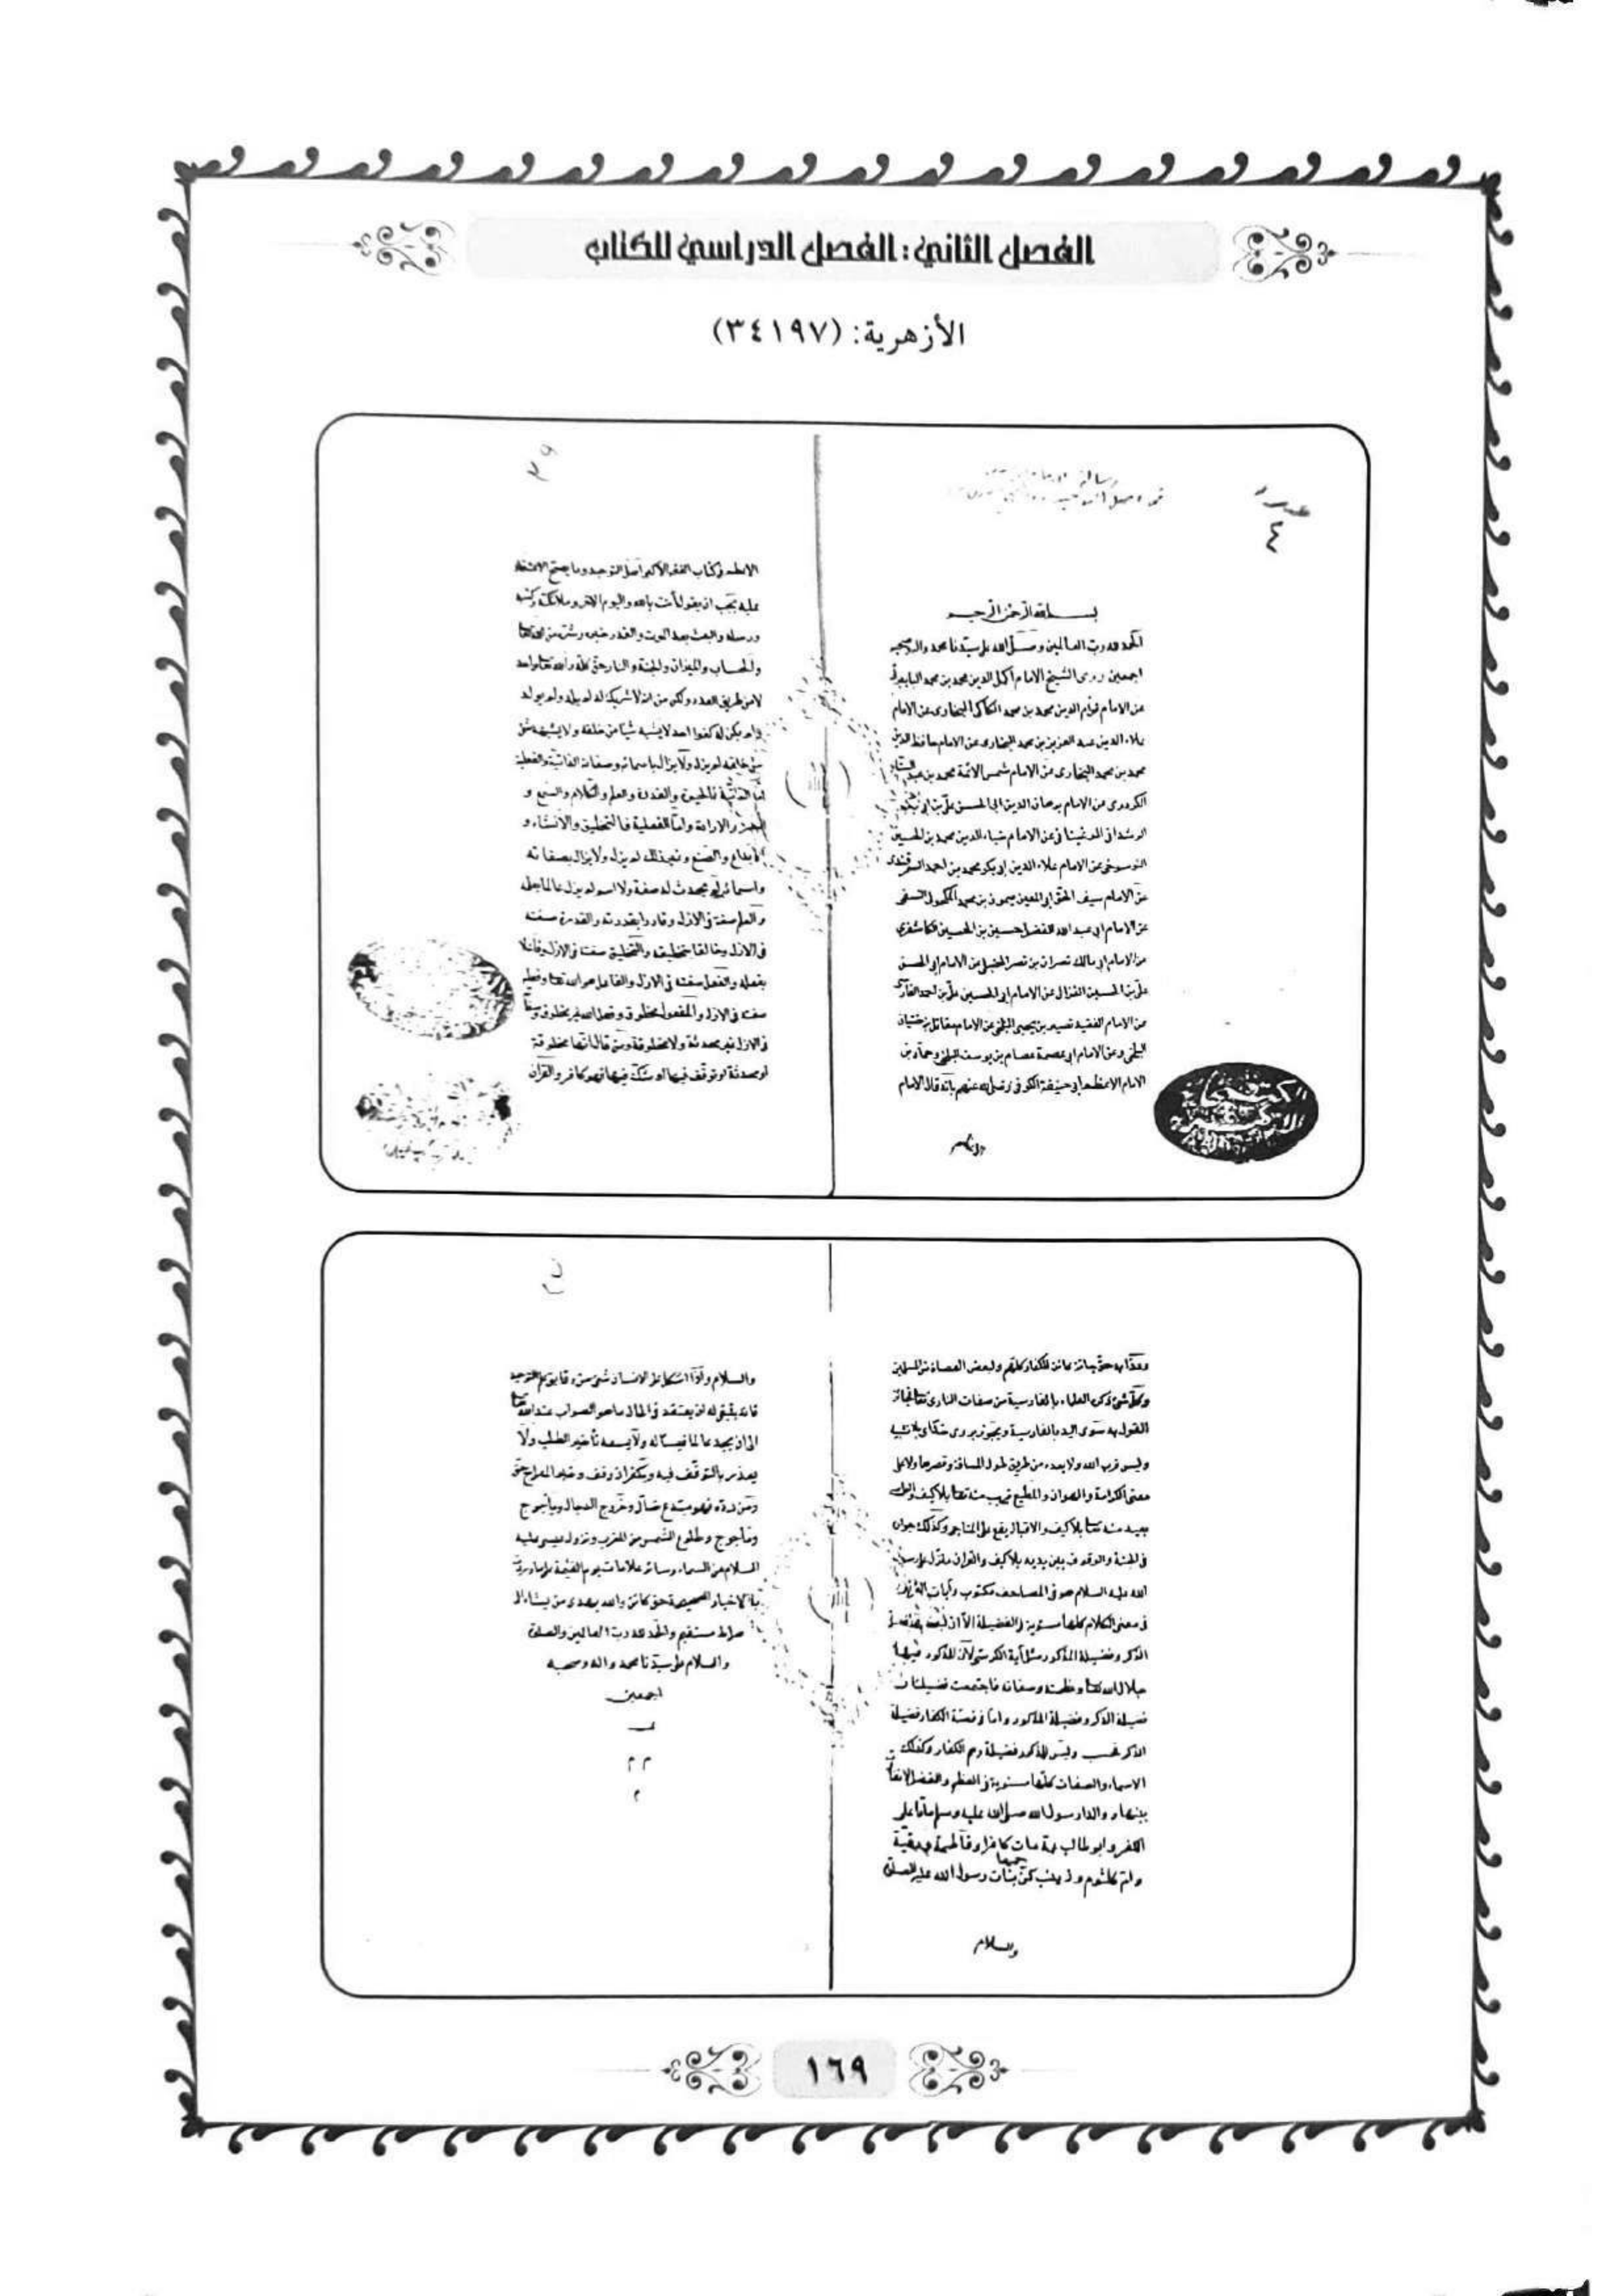 الفصل الثاني: الفصل الدراسي للكتاب
الأزهرية: (٣٤١٩٧)
عدد
٤
رسالة
بسم الله الرحمن الرحيم
الحمد لله رب العالمين وصلى الله على سيدنا محمد واله وصحبه
اجمعين روى الشيخ الامام اكمل الدين محمد بن محمد البابرتي
عن الامام قوام الدين محمد بن محمد الكاكي البخاري عن الامام
علاء الدين عبد العزيز بن محمد البخاري عن الامام حافظ الدين
محمد بن محمد البخاري عن الامام شمس الائمة محمد بن عبد الستار
الكردري عن الامام برهان الدين ابي الحسن علي بن ابي بكر
الرشداني المرغيناني عن الامام ضياء الدين محمد بن الحسين
النوسوخي عن الامام علاء الدين ابي بكر محمد بن احمد السمرقندي
عن الامام سيف الحق ابي المعين ميمون بن محمد المكحول النسفي
عن الامام ابي عبد الله الفضل حسين بن الحسين الكاشغري
عن الامام ابي مالك نصران بن نصر الختلي عن الامام ابي الحسن
علي بن الحسين الغزال عن الامام ابي الحسين علي بن احمد الفارسي
عن الامام الفقيه نصير بن يحيى البلخي عن الامام مقاتل بن
البلخي وعن الامام ابي عصمة عصام بن يوسف البلخي وحماد بن
الامام الاعظم ابي حنيفة الكوفي رضي الله عنهم بانه قال الامام
الاعظم
٣٩
الاعظم في كتاب الفقه الاكبر اصل التوحيد وما يصح الاعتقاد
عليه يجب ان يقول آمنت بالله واليوم الاخر وملائكته وكتبه
ورسله والبعث بعد الموت والقدر خيره وشره من الله تعالى
والحساب والميزان والجنة والنار حق كله والله تعالى واحد
لا من طريق العدد ولكن من انه لا شريك له لم يلد ولم يولد
ولم يكن له كفوا احد لا يشبه شيئا من خلقه ولا يشبهه شئ
من خلقه لم يزل ولا يزال باسمائه وصفاته الذاتية والفعلية
اما الذاتية فالحيوة والقدرة والعلم والكلام والسمع و
البصر والارادة واما الفعلية فالتخليق والانشاء و
الابداع والصنع وغير ذلك لم يزل ولا يزال بصفاته
واسمائه لم يحدث له صفة ولا اسم لم يزل عالما بعلمه
والعلم صفة في الازل وقادرا بقدرته والقدرة صفته
في الازل وخالقا بتخليقه والتخليق صفته في الازل وفاعلا
بفعله والفعل صفته في الازل والفاعل هو الله تعالى وفعله
صفته في الازل والمفعول مخلوق وفعل الله غير مخلوق وصفاته
في الازل غير محدثة ولا مخلوقة ومن قال انها مخلوقة
او محدثة او توقف فيها او شك فيها فهو كافر والقرآن
وعذابه حق جائز كائن للكفار كلهم ولبعض العصاة من المسلمين
وكل شئ ذكره العلماء بالفارسية من صفات الباري تعالى فجائز
القول به سوى اليد بالفارسية ويجوز بروى خداى بلا تشبيه
وليس قرب الله ولا بعده من طريق طول المسافة وقصرها ولا على
معنى الكرامة والهوان والمطيع قريب منه تعالى بلا كيف والعاصي
بعيد منه تعالى بلا كيف والاقبال يقع على المناجي وكذلك جواره
في الجنة والوقوف بين يديه بلا كيف والقرآن منزل على رسول
الله عليه السلام هو في المصاحف مكتوب وآيات القرآن
في معنى الكلام كلها مستوية في الفضيلة الا ان لبعضها فضيلة
الذكر وفضيلة المذكور مثل آية الكرسي لان المذكور فيها
جلال الله تعالى وعظمته وصفاته فاجتمعت فضيلتان
فضيلة الذكر وفضيلة المذكور واما في قصة الكفار فضيلة
الذكر فحسب وليس للمذكور فضيلة وهم الكفار وكذلك
الاسماء والصفات كلها مستوية في العظم والفضل لا تفاوت
بينها ووالدا رسول الله صلى الله عليه وسلم ماتا على
الكفر وابو طالب عمه مات كافرا وفاطمة ورقية
وام كلثوم وزينب كن جميعا بنات رسول الله عليه الصلوة
والسلام
والسلام واذا اشكل على الانسان شئ من دقايق علم التوحيد
فانه ينبغي له ان يعتقد في الحال ما هو الصواب عند الله تعالى
الى ان يجد عالما فيسأله ولا يسعه تأخير الطلب ولا
يعذر بالتوقف فيه ويكفر ان وقف وخبر المعراج حق
ومن رده فهو مبتدع ضال وخروج الدجال وياجوج
وماجوج وطلوع الشمس من المغرب ونزول عيسى عليه
السلام من السماء وسائر علامات يوم القيمة على ما وردت
به الاخبار الصحيحة حق كائن والله يهدي من يشاء الى
صراط مستقيم والحمد لله رب العالمين والصلوة
والسلام على سيدنا محمد واله وصحبه
اجمعين
م م
م
١٦٩